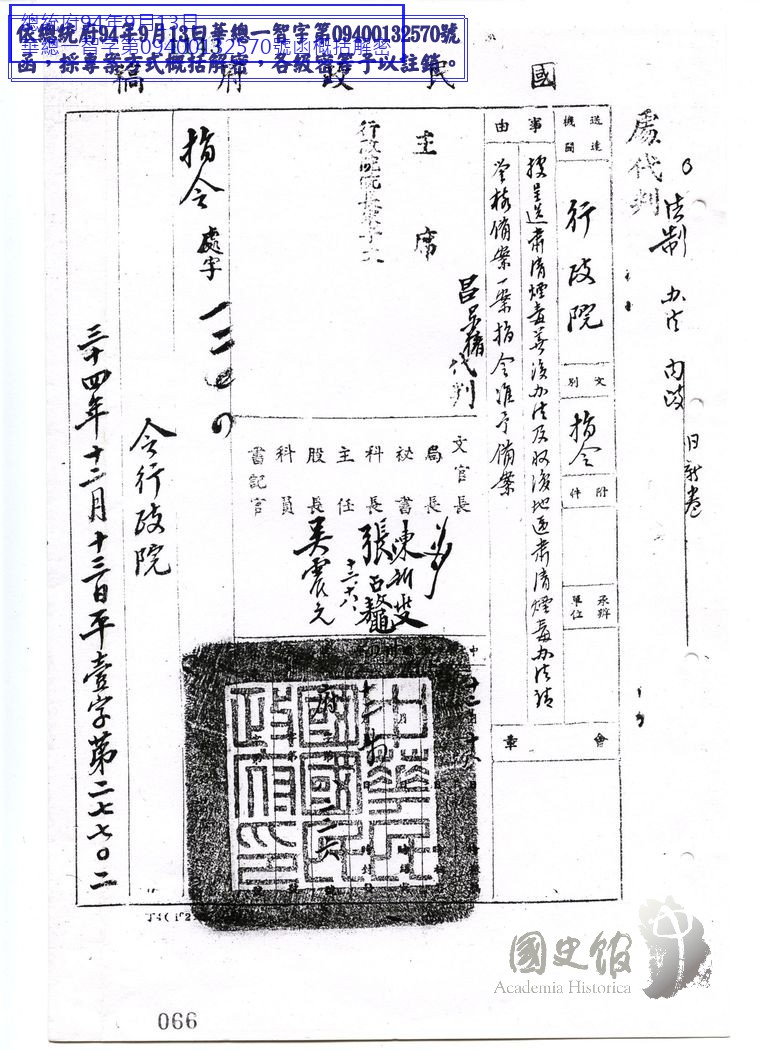 總統府94年9月13日
華總一智字第09400132570號函概括解密
依總統府94年9月13日華總一智字第09400132570號
函,採專案方式概括解密,各級密等予以註銷。
國民政府稿
法制 办法 內政
處代判
送達機關
行政院
文別
指令
附件
承辦單位
會章
事由
據呈送肅清煙毒善後办法及收復地區肅清煙毒办法請
鑒核備案一案指令准予備案
主席
代判
行政院院長宋子文
文官長
局長
秘書
科長
主任
股長
科員
書記官
吳震元
指令
處字
令行政院
三十四年十二月十三日平壹字第二七七〇二
中華民國國民政府印
國史館
Academia Historica
066